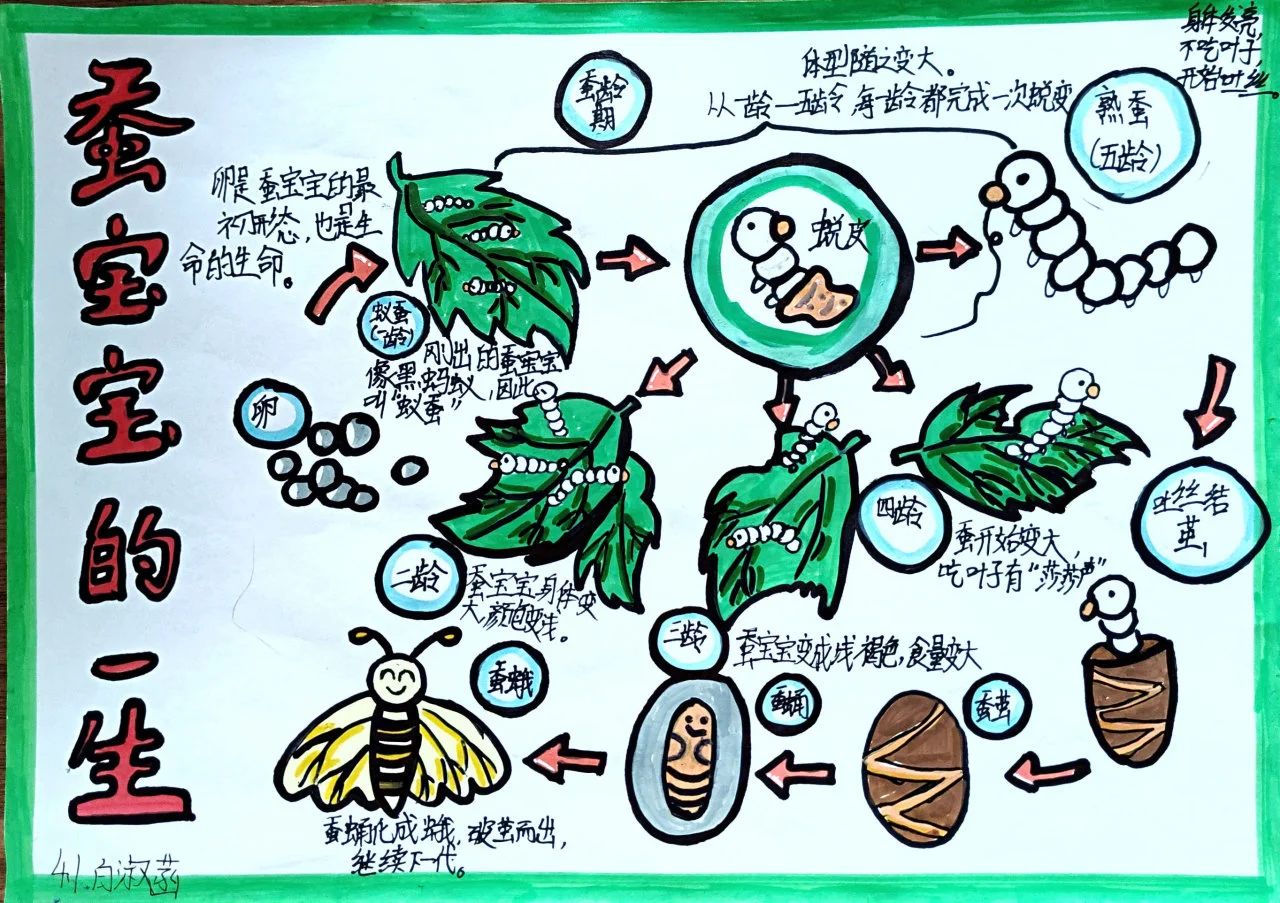 蚕宝宝的一生
身体发亮,
不吃叶子,
开始吐丝。
体型随之变大。
从一龄一五龄,每龄都完成一次蜕变
蚕龄
期
熟蚕
(五龄)
卵是蚕宝宝的最
初形态,也是生
命的生命。
蜕皮
蚁蚕
(一龄)
刚出的蚕宝宝
像黑蚂蚁,因此
叫“蚁蚕”
卵
二龄
蚕宝宝身体变
大,颜色变浅。
三龄
蚕宝宝变成浅褐色,食量变大
四龄
蚕开始变大,
吃叶子有“莎莎声”
吐丝结
茧
蚕茧
蚕蛹
蚕蛾
蚕蛹化成蛾,破茧而出,
继续下一代。
4.1.白淑菡